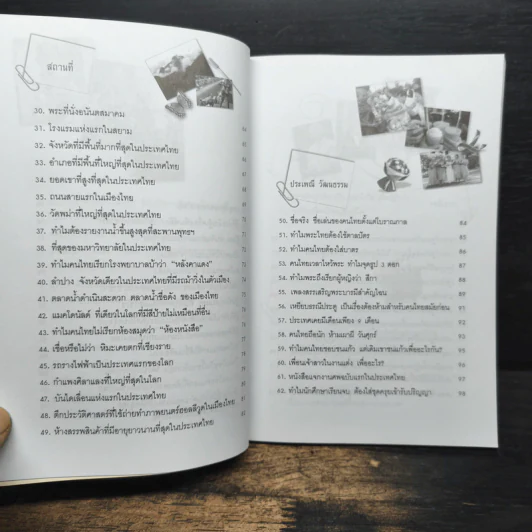 สถานที่
30. พระที่นั่งอนันตสมาคม
31. โรงแรมแห่งแรกในสยาม
32. จังหวัดที่มีพื้นที่มากที่สุดในประเทศไทย
33. อำเภอที่มีพื้นที่ใหญ่ที่สุดในประเทศไทย
34. ยอดเขาที่สูงที่สุดในประเทศไทย
35. ถนนสายแรกในเมืองไทย
36. วัดพม่าที่ใหญ่ที่สุดในประเทศไทย
37. ทำไมต้องรายงานน้ำขึ้นสูงสุดที่สะพานพุทธฯ
38. ที่สุดของมหาวิทยาลัยในประเทศไทย
39. ทำไมคนไทยเรียกโรงพยาบาลบ้าว่า "หลังคาแดง"
40. ลำปาง จังหวัดเดียวในประเทศไทยที่มีรถม้าวิ่งในตัวเมือง
41. ตลาดน้ำดำเนินสะดวก ตลาดน้ำชื่อดัง ของเมืองไทย
42. แมคโดนัลด์ ที่เดียวในโลกที่มีสีป้ายไม่เหมือนที่อื่น
43. ทำไมคนไทยไม่เรียกห้องสมุดว่า "ห้องหนังสือ"
44. เชื่อหรือไม่ว่า หิมะเคยตกที่เชียงราย
45. รถรางไฟฟ้าเป็นประเทศแรกของโลก
46. กำแพงศิลาแลงที่ใหญ่ที่สุดในโลก
47. บันไดเลื่อนแห่งแรกในประเทศไทย
48. ตึกประวัติศาสตร์ที่ใช้ถ่ายทำภาพยนตร์ฮอลลีวูดในเมืองไทย
49. ห้างสรรพสินค้าที่มีอายุยาวนานที่สุดในประเทศไทย
ประเพณี วัฒนธรรม
50. ชื่อจริง ชื่อเล่นของคนไทยตั้งแต่โบราณกาล 84
51. ทำไมพระไทยต้องใช้ตาลปัตร 85
52. ทำไมคนไทยต้องใส่บาตร 86
53. คนไทยเวลาไหว้พระ ทำไมจุดธูป 3 ดอก 87
54. ทำไมพระถึงเรียกผู้หญิงว่า สีกา 88
55. เพลงสรรเสริญพระบารมีสำคัญไฉน 89
56. เหยียบธรณีประตู เป็นเรื่องต้องห้ามสำหรับคนไทยสมัยก่อน
57. ประเทศเคยมีเดือนเพียง ๙ เดือน 92
58. คนไทยถือนัก ห้ามเผาผี วันศุกร์ 93
59. ทำไมคนไทยชอบชนแก้ว แต่เดิมเขาชนแก้วเพื่ออะไรกัน? 95
60. เพื่อนเจ้าสาวในงานแต่ง เพื่ออะไร?
61. หนังสือแจกงานศพฉบับแรกในประเทศไทย
62. ทำไมนักศึกษาเรียนจบ ต้องใส่ชุดครุยเข้ารับปริญญา 98